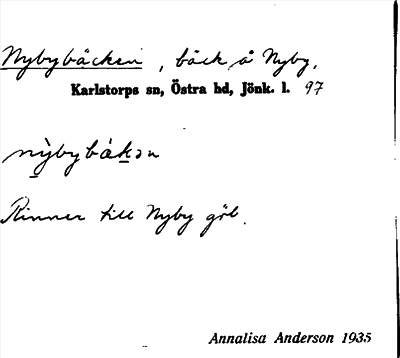 Nybybäcken, bäck å Nyby,
Karlstorps sn, Östra hd, Jönk. l. 97
nỳbybàkən
Rinner till Nyby göl.
Annalisa Anderson 1935